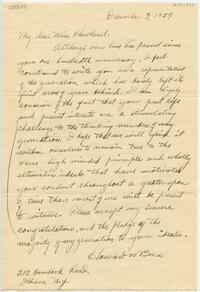 December 9, 1927
My dear Miss Howland:
Although some time has passed since
your one hundredth anniversary, I feel
constrained to write you as a representative
of the generation which has barely left its
first score of years behind. I am highly
conscious of the fact that your past life
and present interests are a stimulating
challenge to the thinking members of my
generation. I hope that we will find it
within ourselves to remain true to the
same high minded principle and wholly
altruistic ideals that have motivated
your conduct throughout a greater span
of time than most of us will be present
to witness. Please accept my sincere
congratulations, and the pledge of the
majority of my generation to your ideals.
Howard
212 Road,
Ithaca, N.Y.